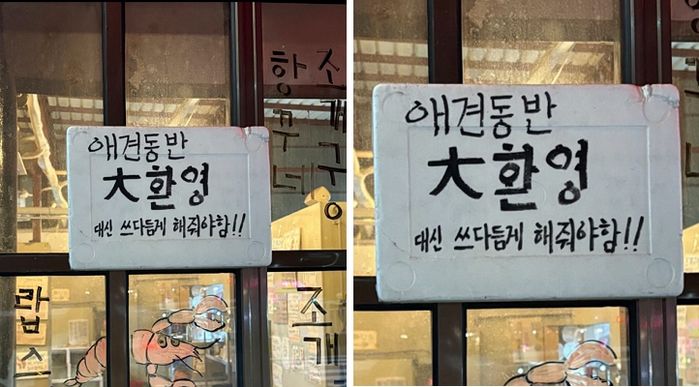 애견동반
大환영
대신 쓰다듬게 해줘야함!!
항구네
조개구
조개
애견동반
大환영
대신 쓰다듬게 해줘야함!!